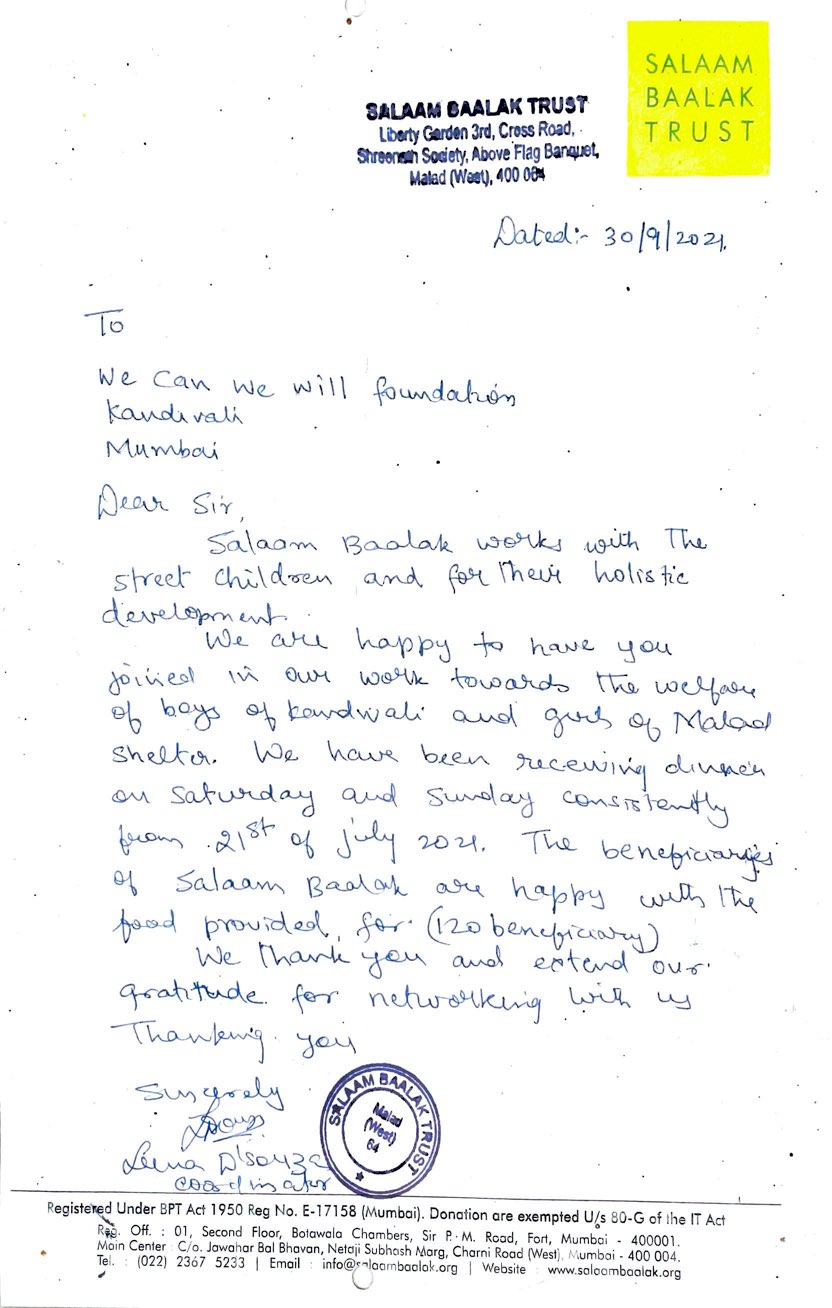 SALAAM
BAALAK
TRUST
SALAAM BAALAK TRUST
Liberty Garden 3rd, Cross Road,
Shreenath Society, Above Flag Banquet,
Malad (West), 400 064
Dated:- 30/9/2021.
To
We Can We will foundation
Kandivali
Mumbai
Dear Sir,
Salaam Baalak works with The
street children and for Their holistic
development.
We are happy to have you
joined in our work towards the welfare
of boys of kandivali and girls of Malad
shelter. We have been receiving dinner
on Saturday and Sunday consistently
from 21st of july 2021. The beneficiaries
of Salaam Baalak are happy with the
food provided, for (120 beneficiary)
We Thank you and extend our
gratitude for networking with us
Thanking you
Sincerely
Leena D'souza
coordinator
SALAAM BAALAK TRUST
Malad
(West)
64
Registered Under BPT Act 1950 Reg No. E-17158 (Mumbai). Donation are exempted U/s 80-G of the IT Act
Reg. Off. : 01, Second Floor, Botawala Chambers, Sir P. M. Road, Fort, Mumbai - 400001.
Main Center : C/o. Jawahar Bal Bhavan, Netaji Subhash Marg, Charni Road (West), Mumbai - 400 004.
Tel. : (022) 2367 5233 | Email : info@salaambaalak.org | Website : www.salaambaalak.org